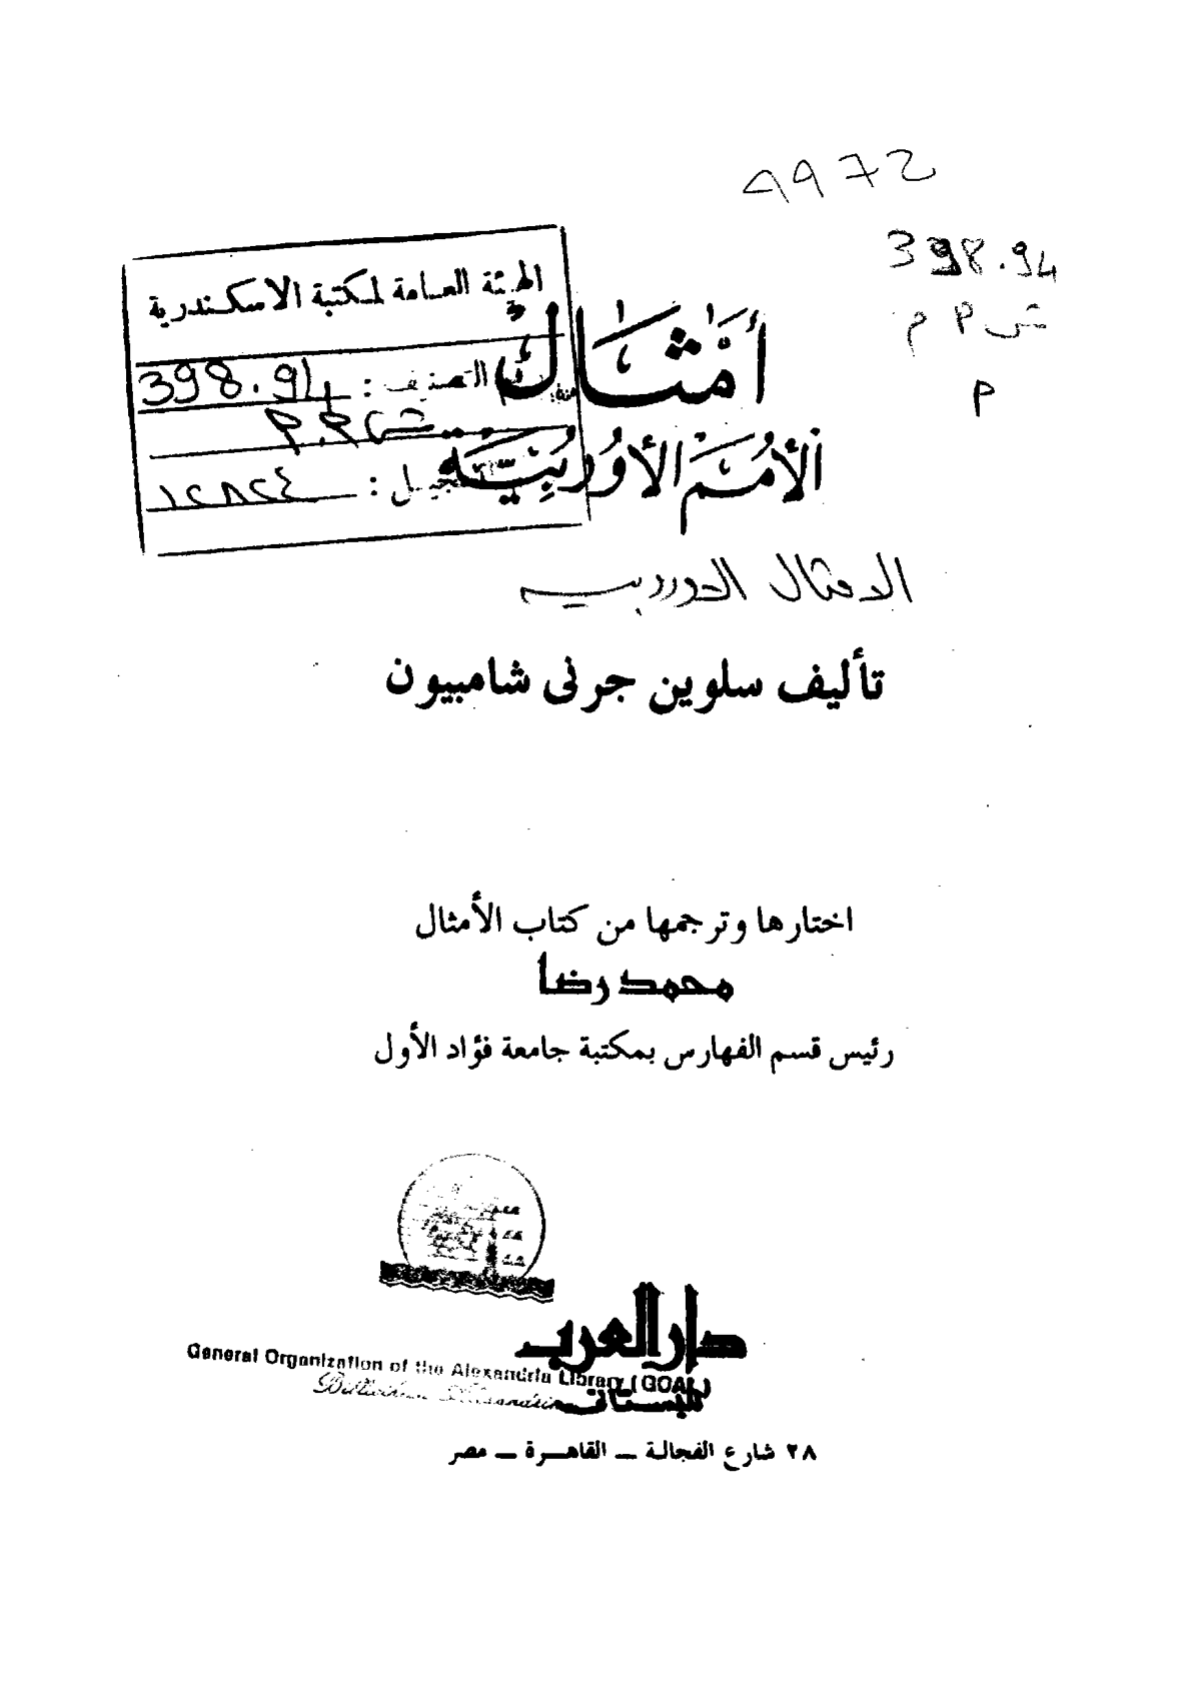 9972
398.94
ش م م
م
الهيئة العامة لمكتبة الاسكندرية
رقم التصنيف : 398.94
ش.م.م
التسجيل : ١٢٨٢٤
أَمْثَالُ
الأُمَمِ الأُورُبِيَّة
الامثال الاوروبيه
تأليف سلوين جرنى شامبيون
اختارها وترجمها من كتاب الأمثال
محمد رضا
رئيس قسم الفهارس بمكتبة جامعة فؤاد الأول
دار العرب
للبستانى
General Organization of the Alexandria Library (GOAL)
Bibliotheca Alexandrina
٢٨ شارع الفجالة – القاهرة – مصر